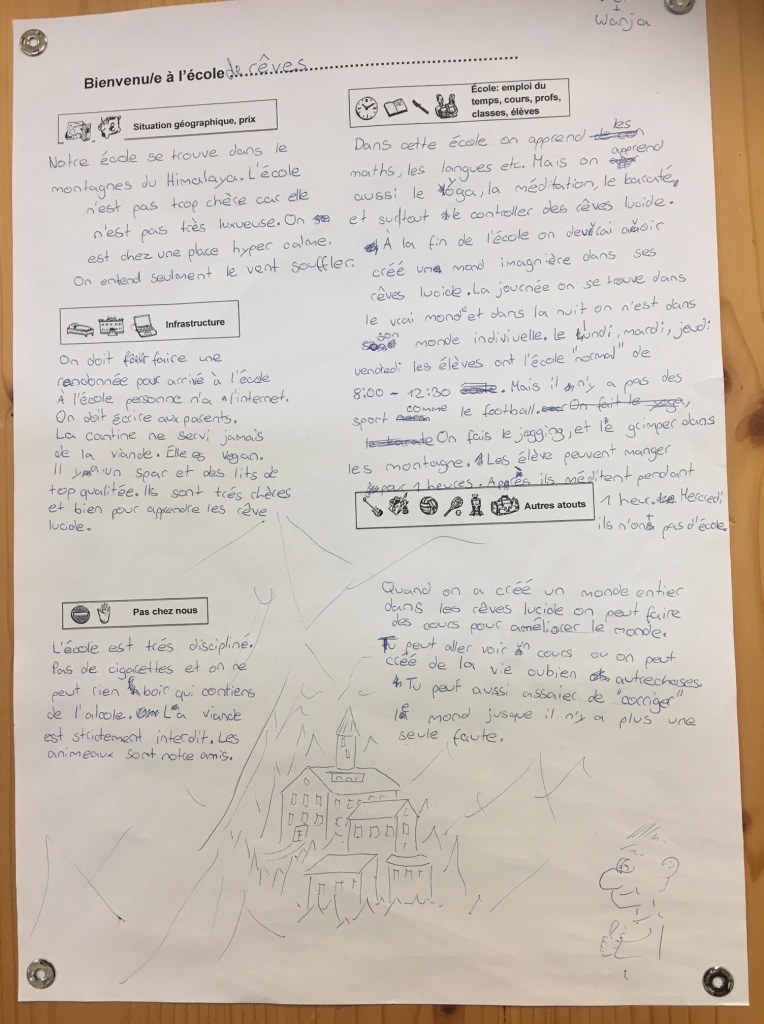 Wanja
Bienvenu/e à l'école de rêves
Situation géographique, prix
Notre école se trouve dans le
montagnes du Himalaya. L'école
n'est pas trop chère car elle
n'est pas très luxueuse. On
est chez une place hyper calme.
On entend seulment le vent souffler.
Infrastructure
On doit faire une
randonnée pour arrivé à l'école
À l'école personne n'a l'internet.
On doit écrire aux parents.
La cantine ne servi jamais
de la viande. Elle es vegan.
Il y a un spar et des lits de
top qualitée. Ils sont trés chères
et bien pour apprendre les rêve
lucide.
Pas chez nous
L'école est trés discipliné.
Pas de cigarettes et on ne
peut rien boir qui contiens
de l'alcole. La viande
est strictement interdit. Les
animeaux sont notre amis.
École: emploi du
temps, cours, profs,
classes, élèves
Dans cette école on apprend les
maths, les langues etc. Mais on apprend
aussi le Yoga, la méditation, le karaté,
et surtout de controller des rêves lucide.
À la fin de l'école on devrai avoir
créé un mond imagnière dans ses
rêves lucide. La journée on se trouve dans
le vrai monde et dans la nuit on n'est dans
son monde indiviuelle. Le Lundi, mardi, jeudi
vendredi les élèves ont l'école "normal" de
8:00 ~ 12:30. Mais il n'y a pas des
sport comme le football. On fait le yoga,
le karate On fais le jogging, et le grimper dans
les montagne. Les élève peuvent manger
pour 1 heures. Après ils méditent pendant
1 heur. Mercredi
ils n'ont pas d'école.
Autres atouts
Quand on a créé un monde entier
dans les rêves lucide on peut faire
des cours pour améliorer le monde.
Tu peut aller voir cours ou on peut
créé de la vie oubien autrechoses.
Tu peut aussi assaier de "corriger"
le mond jusque il n'y a plus une
seule faute.